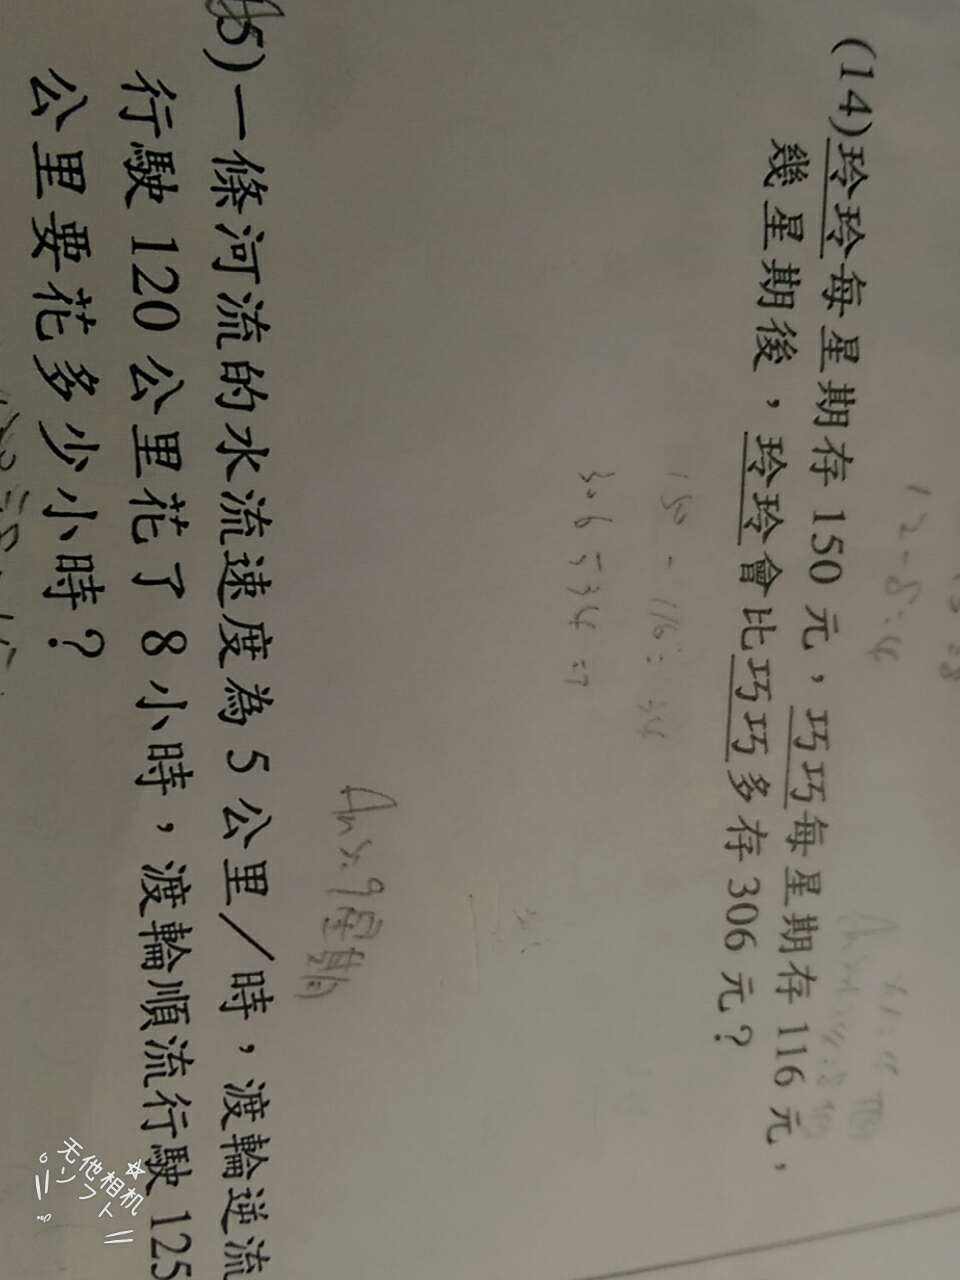 (14)玲玲每星期存 150 元，巧巧每星期存 116 元，
幾星期後，玲玲會比巧巧多存 306 元？
12-8=4
150-116=34
306÷34=
Ans:9星期
5)一條河流的水流速度為 5 公里／時，渡輪逆流
行駛 120 公里花了 8 小時，渡輪順流行駛 125
公里要花多少小時？
无他相机
ソフト